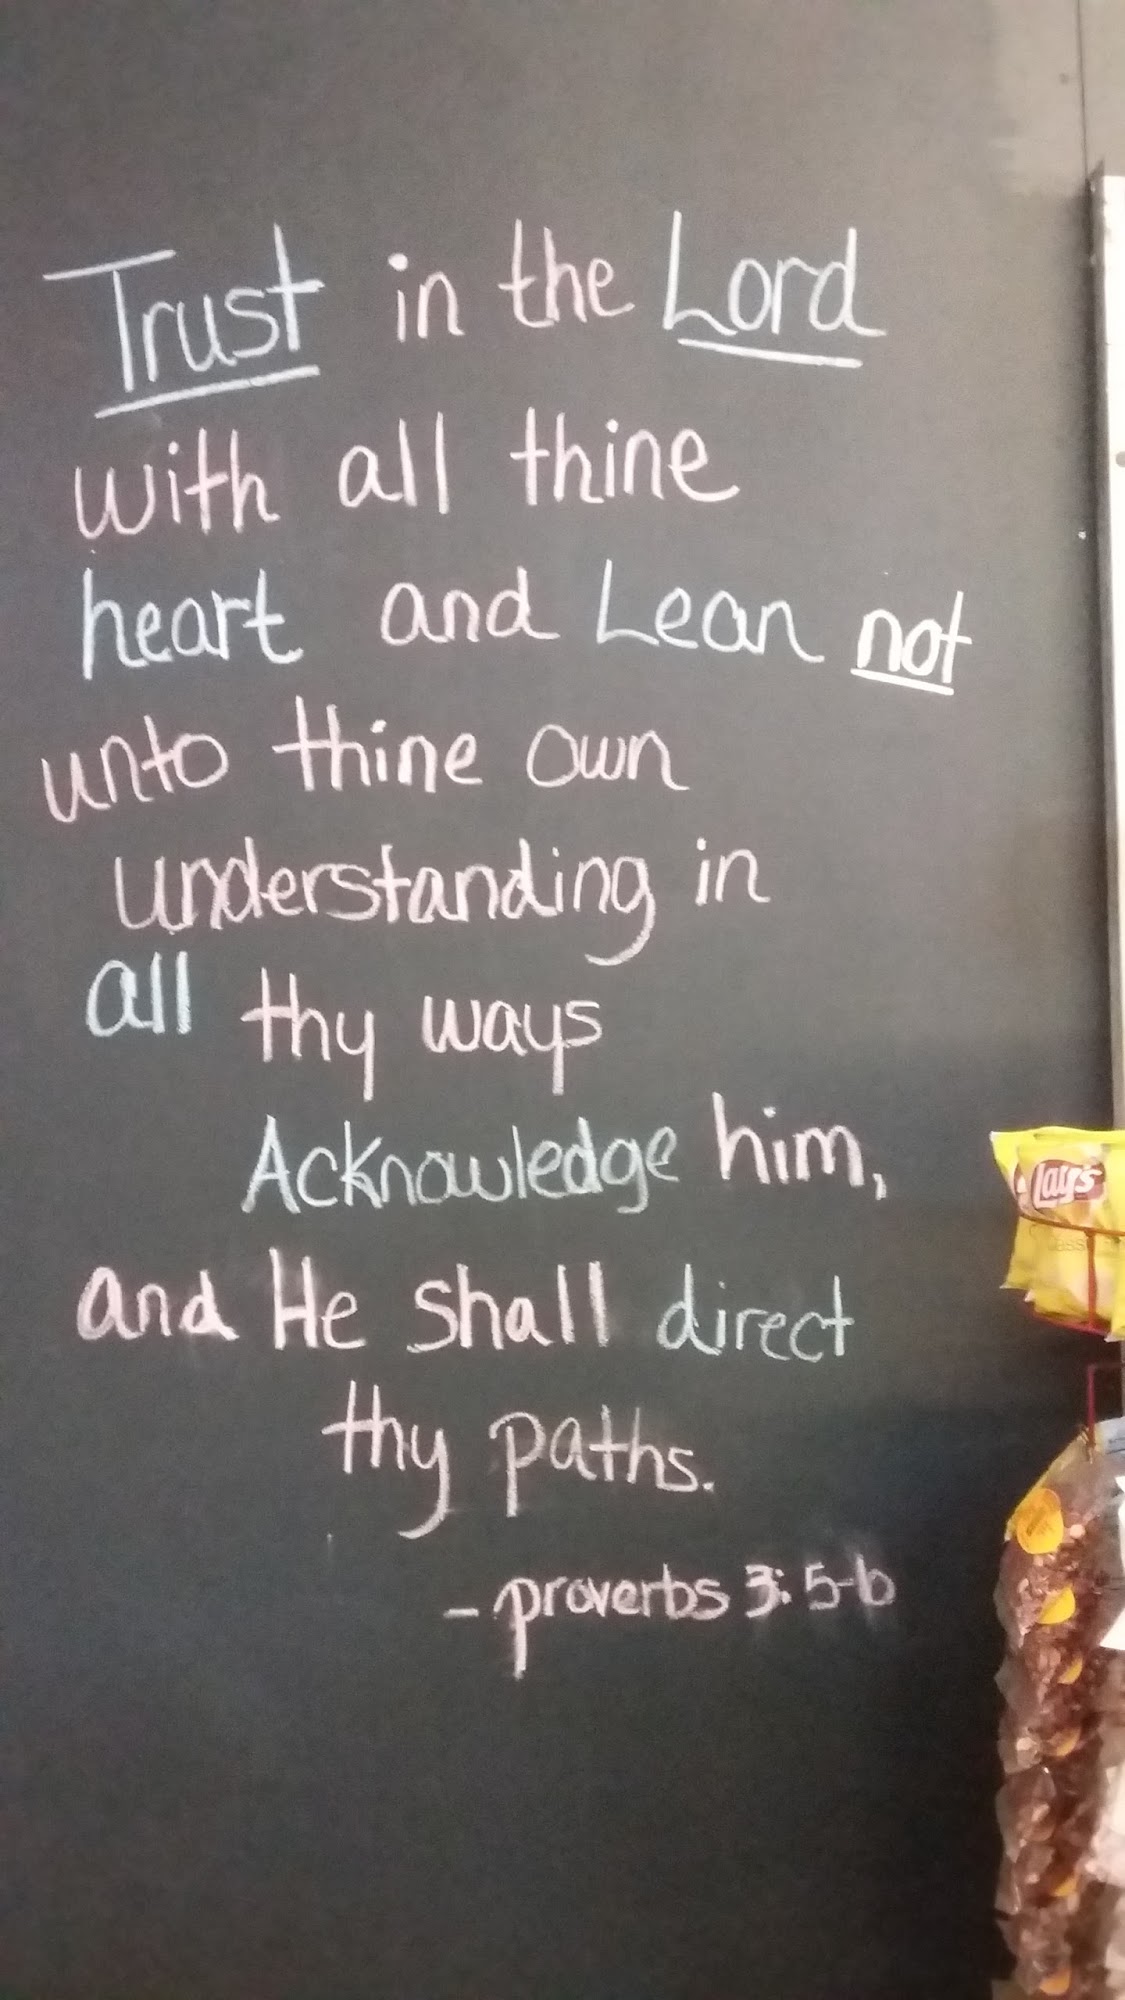 Trust in the Lord
with all thine
heart and Lean not
unto thine own
understanding in
all thy ways
Acknowledge him,
and He shall direct
thy paths.
- proverbs 3:5-6
Lay's
Classic